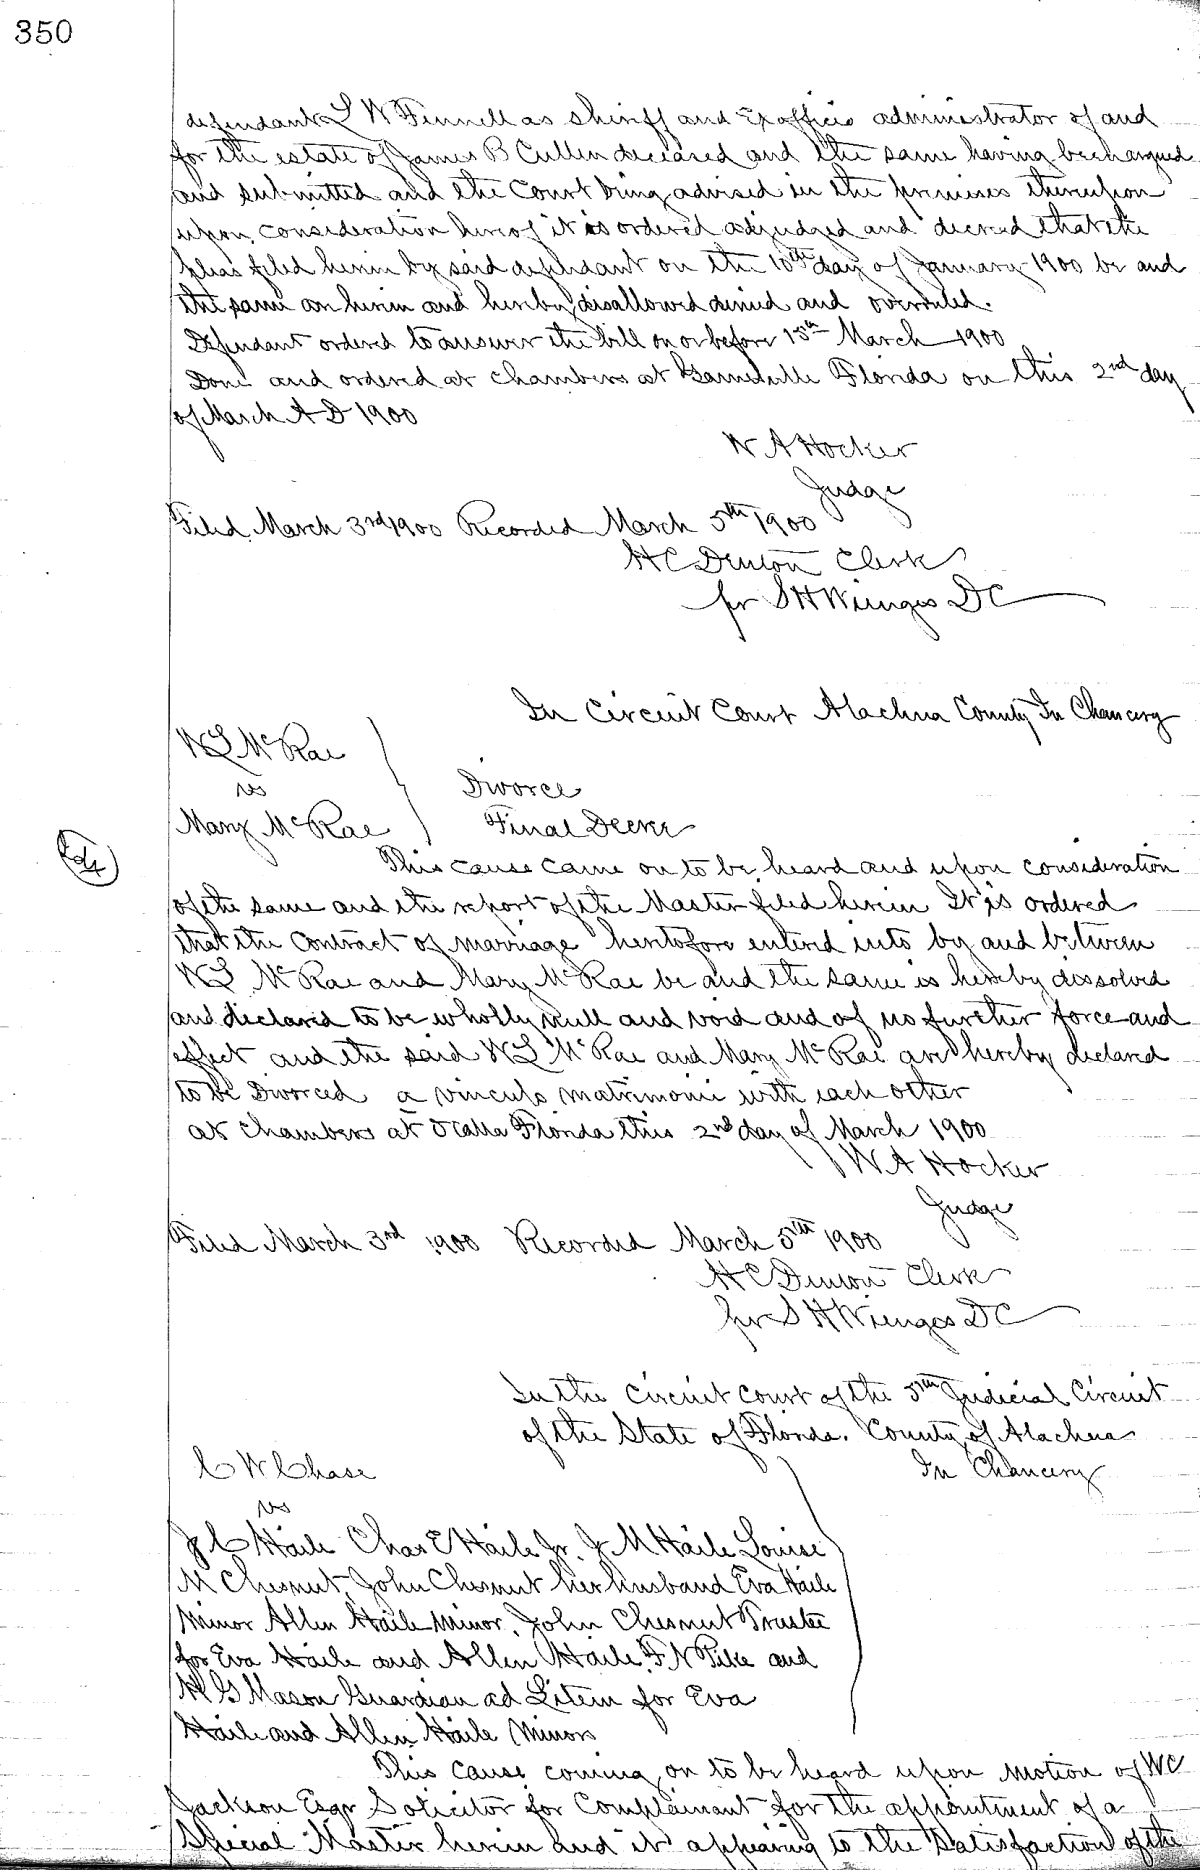 350
defendant L W Fennell as Sheriff and Exofficio administrator of and
for the estate of James B Cullen deceased and the same having been argued
and submitted and the Court being advised in the premises thereupon
upon consideration hereof it is ordered adjudged and decreed that the
pleas filed herein by said defendant on the 10th day of January 1900 be and
the same are herein and hereby disallowed denied and overruled.
Defendant ordered to answer the bill on or before 15th March 1900
Done and ordered at Chambers at Gainesville Florida on this 2nd day
of March A D 1900
W A Hocker
Judge
Filed March 3rd 1900 Recorded March 5th 1900
H C Denton Clerk
per S H Wienges D C
In Circuit Court Alachua County In Chancery
W L McRae
vs
Divorce
Mary McRae
Final Decree
This cause came on to be heard and upon consideration
of the same and the report of the Master filed herein It is ordered
that the Contract of marriage heretofore entered into by and between
W L McRae and Mary McRae be and the same is hereby dissolved
and declared to be wholly null and void and of no further force and
effect and the said W L McRae and Mary McRae are hereby declared
to be Divorced a vinculo matrimonii with each other
at Chambers at Ocala Florida this 2nd day of March 1900
W A Hocker
Judge
Filed March 3rd 1900 Recorded March 5th 1900
H C Denton Clerk
per S H Wienges D C
In the Circuit Court of the 5th Judicial Circuit
of the State of Florida. County of Alachua
In Chancery
C W Chase
vs
J C Haile Chas E Haile Jr. J M Haile Louise
M Chesnut, John Chesnut her husband Eva Haile
Minor Allen Haile Minor, John Chesnut Trustee
for Eva Haile and Allen Haile, F N Pike and
H G Mason Guardian ad Litem for Eva
Haile and Allen Haile Minors
This cause coming on to be heard upon Motion of W C
Jackson Esqr Solicitor for Complainant for the appointment of a
Special Master herein and it appearing to the Satisfaction of the